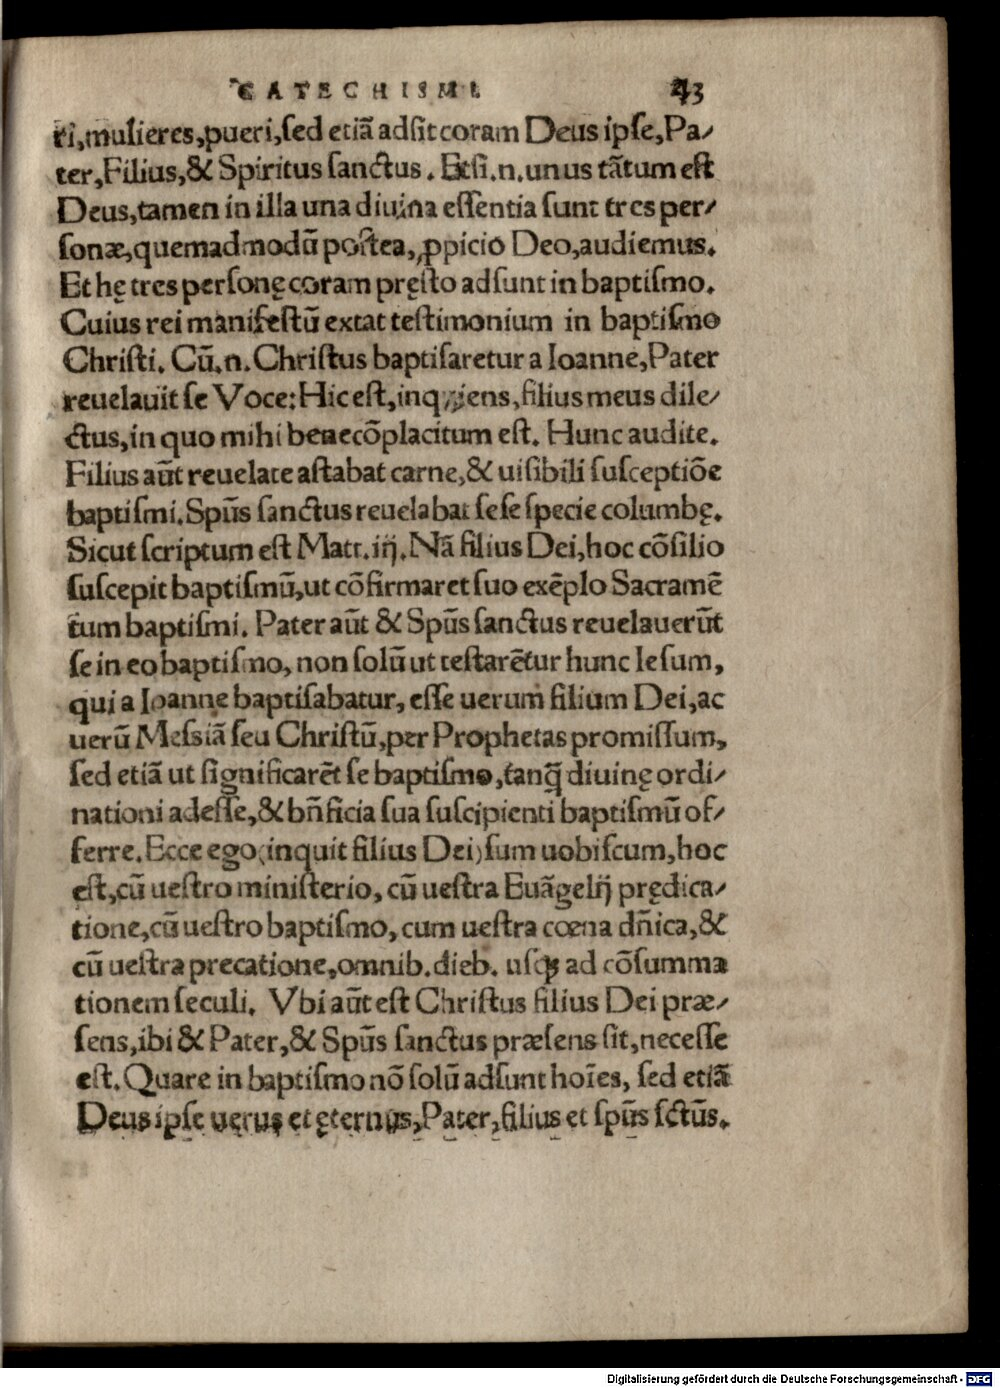 CATECHISMI 43
ri, mulieres, pueri, sed etiā adsit coram Deus ipse, Pa/
ter, Filius, & Spiritus sanctus. Etsi.n.unus tātum est
Deus, tamen in illa una diuina essentia sunt tres per/
sonæ, quemadmodū postea, ꝓpicio Deo, audiemus.
Et hę tres personę coram pręsto adsunt in baptismo.
Cuius rei manifestū extat testimonium in baptismo
Christi. Cū.n. Christus baptisaretur a Ioanne, Pater
reuelauit se Voce: Hic est, inquiens, filius meus dile/
ctus, in quo mihi bene cōplacitum est. Hunc audite.
Filius aūt reuelate astabat carne, & uisibili susceptiōe
baptismi. Spūs sanctus reuelabat sese specie columbę.
Sicut scriptum est Matt.iij. Nā filius Dei, hoc cōsilio
suscepit baptismū, ut cōfirmaret suo exēplo Sacramē
tum baptismi. Pater aūt & Spūs sanctus reuelauerūt
se in eo baptismo, non solū ut testarētur hunc Iesum,
qui a Ioanne baptisabatur, esse uerum filium Dei, ac
uerū Messiā seu Christū, per Prophetas promissum,
sed etiā ut significarēt se baptismo, tanq̄ diuinę ordi/
nationi adesse, & bn̄ficia sua suscipienti baptismū of/
ferre. Ecce ego (inquit filius Dei) sum uobiscum, hoc
est, cū uestro ministerio, cū uestra Euāgelij prędica/
tione, cū uestro baptismo, cum uestra cœna dn̄ica, &
cū uestra precatione, omnib. dieb. usqꝫ ad cōsumma
tionem seculi. Vbi aūt est Christus filius Dei præ/
sens, ibi & Pater, & Spūs sanctus præsens sit, necesse
est. Quare in baptismo nō solū adsunt hoīes, sed etiā
Deus ipse uerus et ęternus, Pater, filius et spūs sctūs.
Digitalisierung gefördert durch die Deutsche Forschungsgemeinschaft - DFG